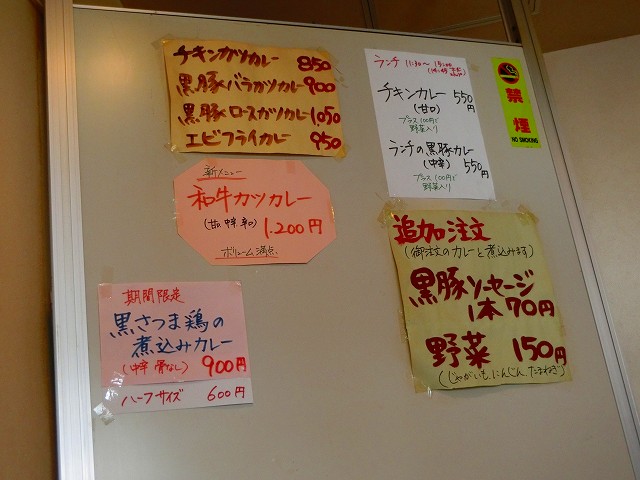 チキンカツカレー 850
黒豚バラカツカレー 900
黒豚ロースカツカレー 1,050
エビフライカレー 950
新メニュー
和牛カツカレー
(甘口 中辛 辛口) 1,200円
ボリューム満点
期間限定
黒さつま鶏の
煮込みカレー
(中辛 骨なし) 900円
ハーフサイズ 600円
ランチ 11:30〜
チキンカレー 550円
(甘口)
プラス100円で
野菜入り
ランチの黒豚カレー
(中辛) 550円
プラス100円で
野菜入り
禁煙
NO SMOKING
追加注文
(御注文のカレーと煮込みます)
黒豚ソーセージ
1本70円
野菜 150円
(じゃがいも、にんじん、たまねぎ)